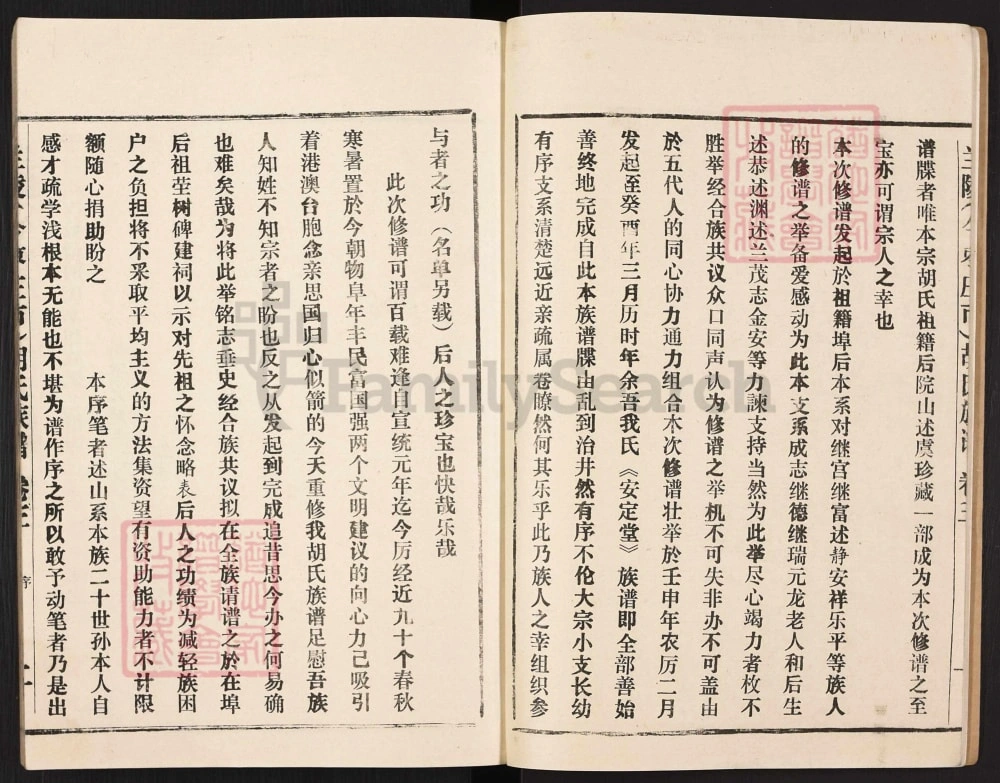 谱牒者唯本宗胡氏祖籍后院山述虞珍藏一部成为本次修谱之至
宝亦可谓宗人之幸也
本次修谱发起於祖籍埠后本系对继宫继富述静安祥乐平等族人
的修谱之举备爱感动为此本支系成志继德继瑞元龙老人和后生
述恭述渊述兰茂志金安等力諫支持当然为此举尽心竭力者枚不
胜举经合族共议众口同声认为修谱之举机不可失非办不可盖由
於五代人的同心协力通力组合本次修谱壮举於壬申年农历二月
发起至癸酉年三月历时年余吾我氏《安定堂》族谱即全部善始
善终地完成自此本族谱牒由乱到治井然有序不伦大宗小支长幼
有序支系清楚远近亲疏属卷瞭然何其乐乎此乃族人之幸组织参
与者之功（名单另载）后人之珍宝也快哉乐哉
此次修谱可谓百载难逢自宣统元年迄今厉经近九十个春秋
寒暑置於今朝物阜年丰民富国强两个文明建议的向心力己吸引
着港澳台胞念亲思国归心似箭的今天重修我胡氏族谱足慰吾族
人知姓不知宗者之盼也反之从发起到完成追昔思今办之何易确
也难矣哉为将此举铭志垂史经合族共议拟在全族请谱之於在埠
后祖茔树碑建祠以示对先祖之怀念略表后人之功绩为减轻族困
户之负担将不采取平均主义的方法集资望有资助能力者不计限
额随心捐助盼之
本序笔者述山系本族二十世孙本人自
感才疏学浅根本无能也不堪为谱作序之所以敢予动笔者乃是出
序
FamilySearch